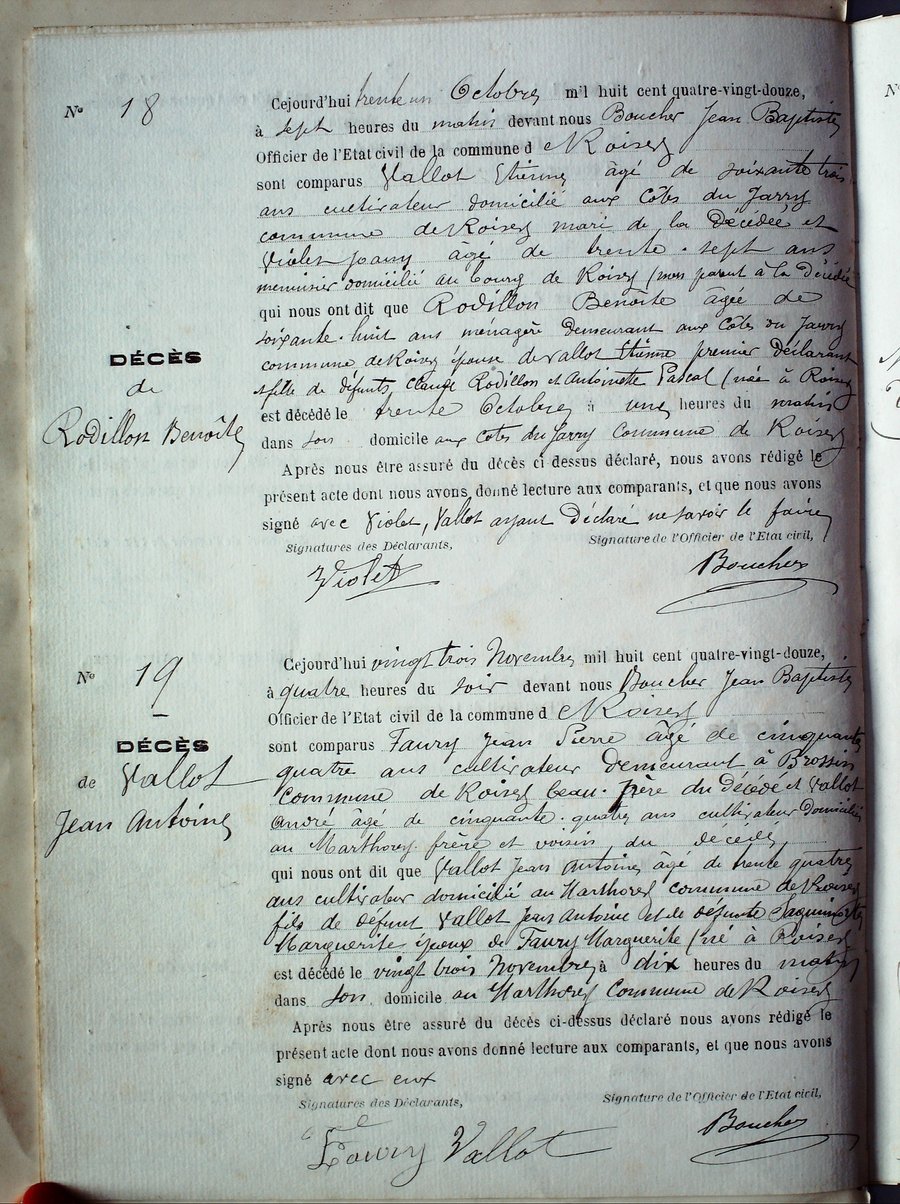 N° 18
Cejourd'hui trente un Octobre mil huit cent quatre-vingt-douze,
à sept heures du matin devant nous Boucher Jean Baptiste
Officier de l'Etat civil de la commune d e Roisey
sont comparus Vallot Etienne âgé de soixante trois
ans cultivateur domicilié aux Côtes du Jarry
commune de Roisey mari de la Décédée et
Violet joany âgé de trente-sept ans
menuisier domicilié au bourg de Roisey (non parent à la Décédée
qui nous ont dit que Rodillon Benoîte âgée de
soixante-huit ans ménagère demeurant aux côtes du Jarry
commune de Roisey épouse de Vallot Etienne premier Déclarant
et fille de défunts Claude Rodillon et Antoinette Pascal (née à Roisey
DÉCÈS
de
Rodillon Benoîte
est décédé le trente Octobre à une heures du matin
dans son domicile aux côtes du Jarry Commune de Roisey
Après nous être assuré du décès ci dessus déclaré, nous avons rédigé le
présent acte dont nous avons donné lecture aux comparants, et que nous avons
signé avec Violet, Vallot ayant Déclaré ne savoir le faire
Signatures des Déclarants, Signature de l'Officier de l'Etat civil,
Violet Boucher
N° 19
Cejourd'hui vingt trois Novembre mil huit cent quatre-vingt-douze,
à quatre heures du soir devant nous Boucher Jean Baptiste
Officier de l'Etat civil de la commune d e Roisey
sont comparus Faury Jean Pierre âgé de cinquante
quatre ans cultivateur Demeurant à Brossin
Commune de Roisey beau-frère du Décédé et Vallot
André âgé de cinquante-quatre ans cultivateur Domicilié
au Marthorey frère et voisin du décédé
DÉCÈS
de Vallot
Jean Antoine
qui nous ont dit que Vallot Jean Antoine âgé de trente quatre
ans cultivateur domicilié au Marthorey commune de Roisey
fils de défunt Vallot Jean Antoine et de défunte
Marguerite époux de Faury Marguerite (né à Roisey
est décédé le vingt trois Novembre à dix heures du matin
dans son domicile au Marthorey Commune de Roisey
Après nous être assuré du décès ci-dessus déclaré nous avons rédigé le
présent acte dont nous avons donné lecture aux comparants, et que nous avons
signé avec eux
Signatures des Déclarants, Signature de l'Officier de l'Etat civil,
Faury Vallot Boucher